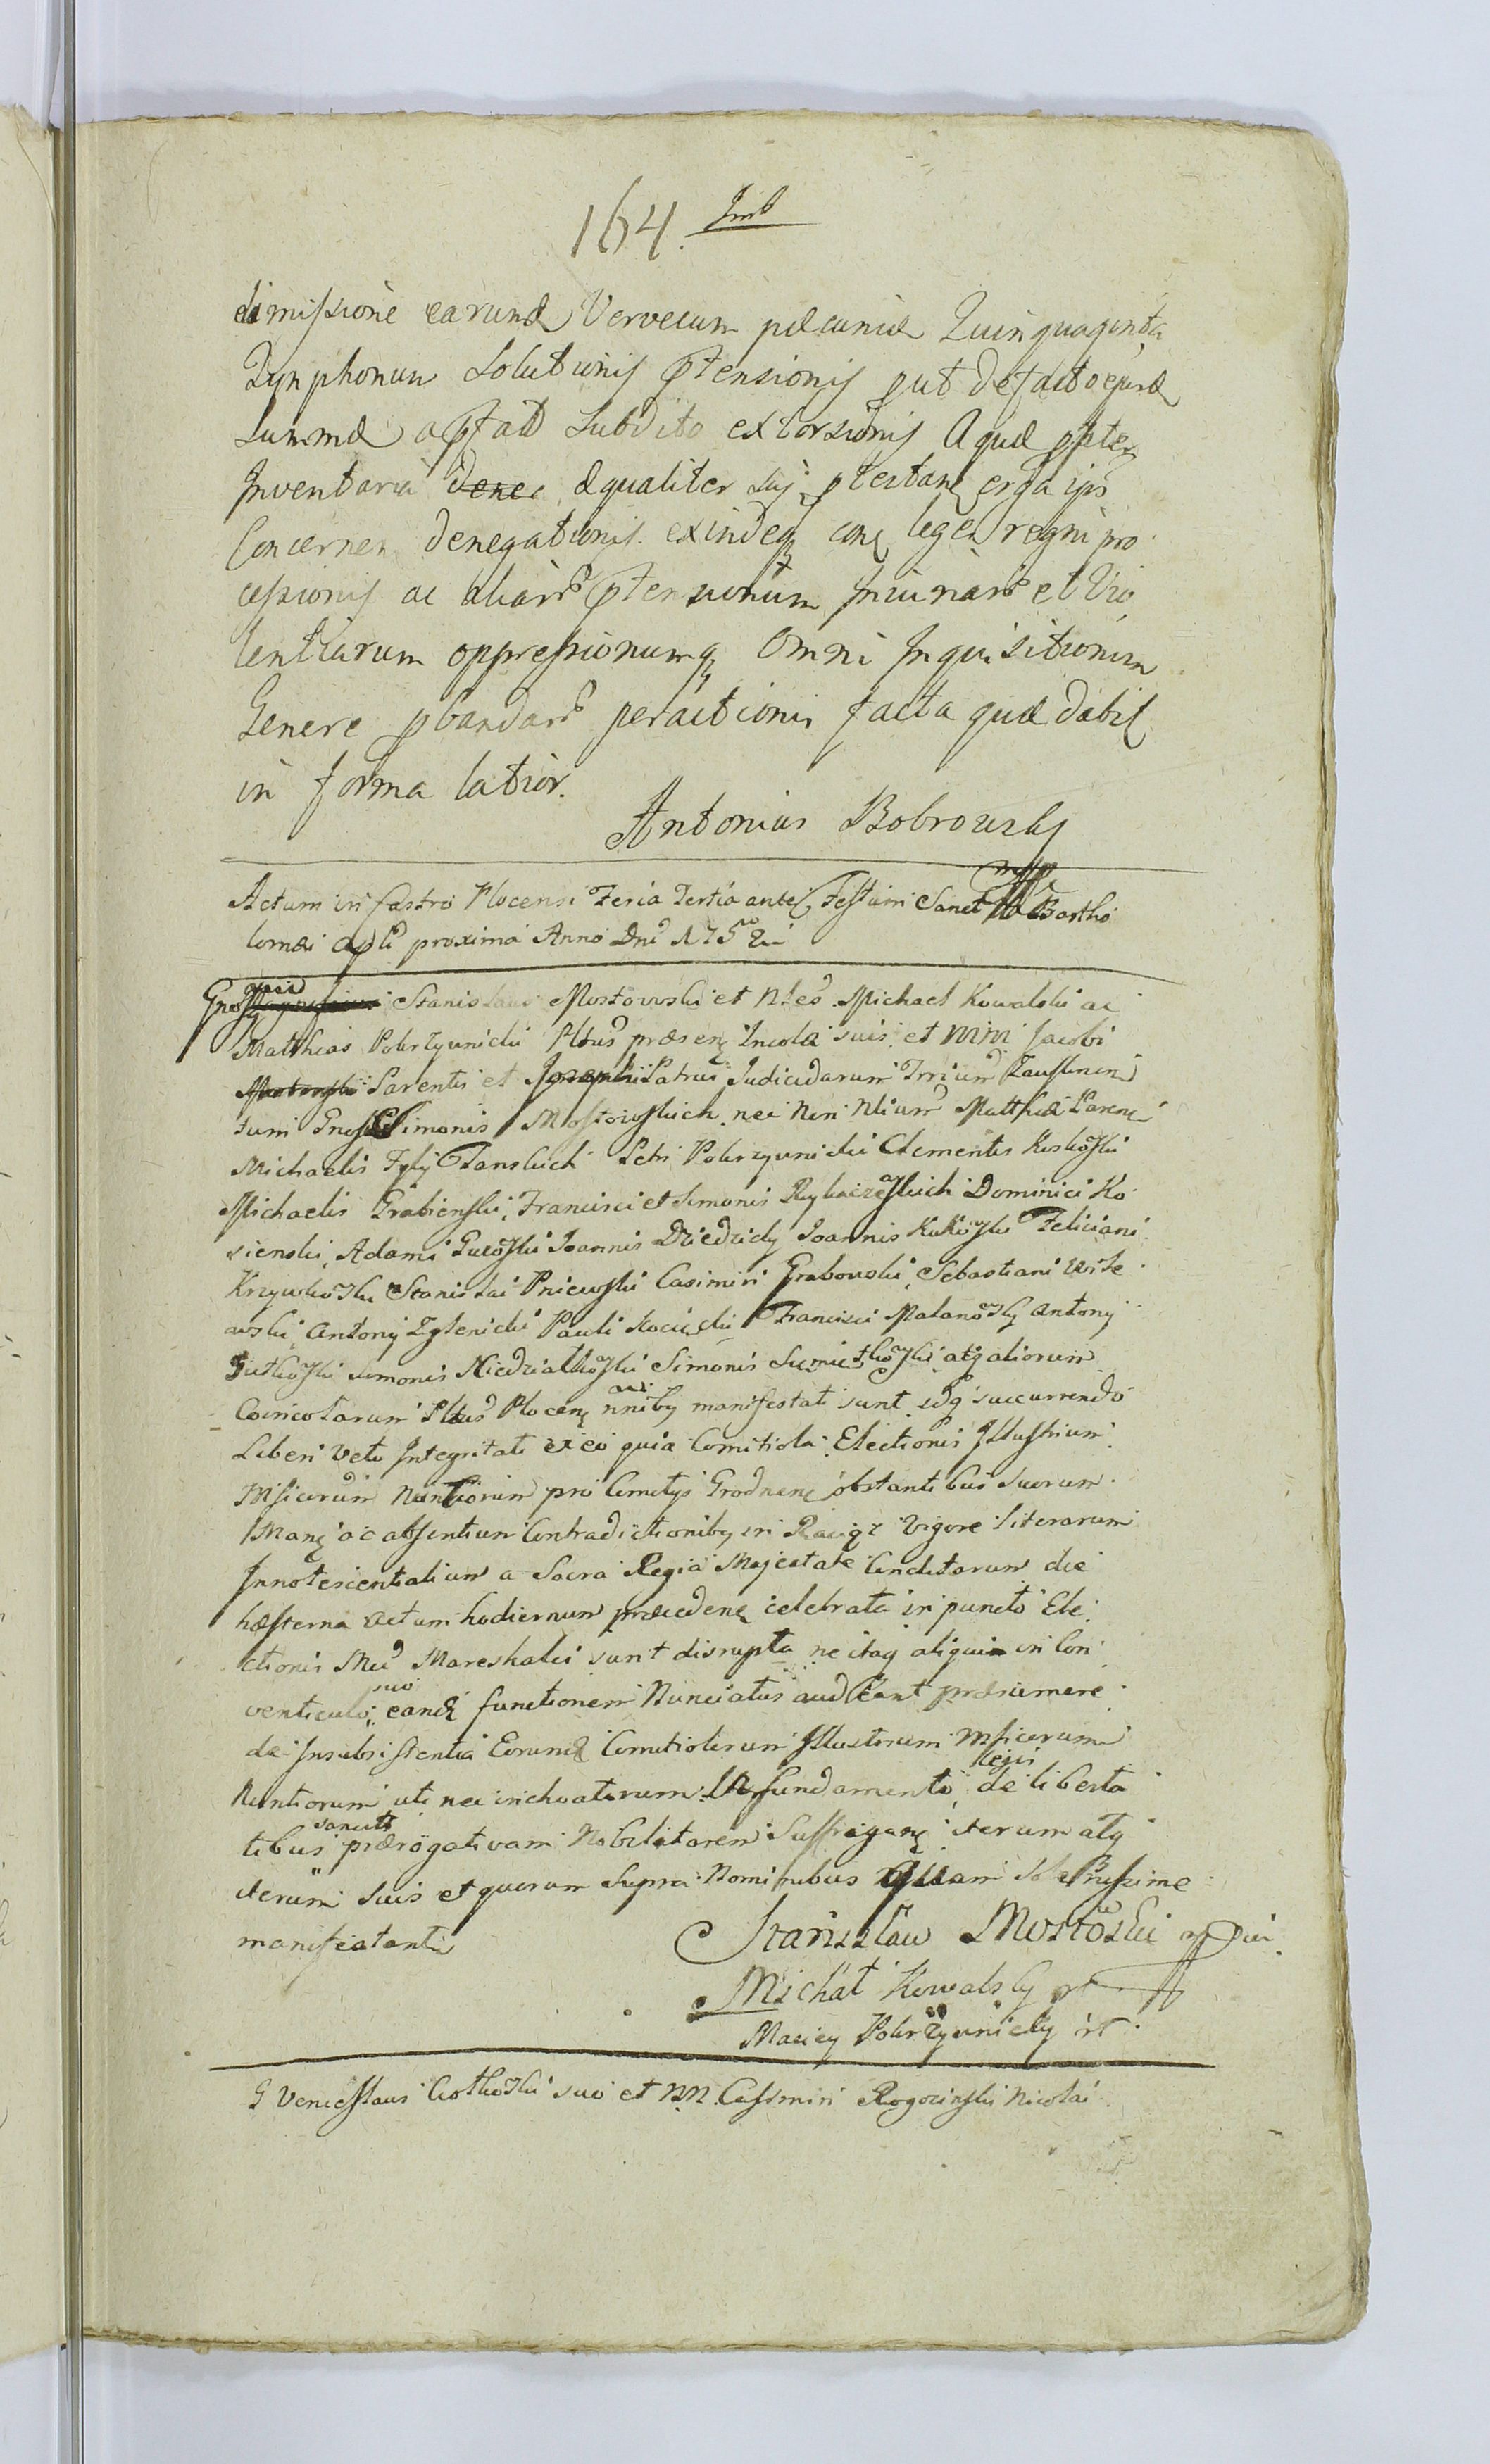 164. Imb
dimissione earund Vervecum pecuniæ Quinquaginta
Tynphonum Solutionis ptensionis put de facto ejusd
Summæ a pfato Subdito extorsionis Aquæ ppter
Inventaria dene æqualiter suj ptestan erga ips
Concernen denegationis exindeq con leges regni pro
cessionis ac aliarr ptensionum Iniuriarr et Vio
lentiarum oppressionumq Omni Inquisitionum
Genere pbandarr peractionis facta quæ dabit
in forma latior.
Antonius Bobrowsky
mpp
Actum in Castro Plocensi Feria Tertia ante Festum Sancti Bartho
lomæi Apli proxima Anno Dni 1752do
Gnosus Stanislaus Mostowski et Nles Michael Kowalski ac
Matthias Pokrzywnicki Pltus præsen Incolæ suis et MM Jacobi
Parentis et Josephi Patrui Judicidarum Trrium Zausknen
tum Gnosi Simonis Mostowskich nec Non Nlium Matthiæ Paren
Michaelis Fylij Tanskich Petri Pokrzywnicki Clementis Koskoski
Michaelis Grabienski, Francisci et Simonis Rykaczewskich Dominici Ko
sienski, Adami Gucoski Joannis Dziedzicky Joannis Kukoski Feliciani
Krzywkoski Stanislai Pniewski Casimiri Grabowski, Sebastiani Wisle
awski, Antonij Zglenicki Pauli Kocięcki Francisci Malanosky Antonij
Gutkoski Simonis Niedzialkoski Simonis Sumietkoski atq aliorum
Coincolarum Pltus Plocen nniby manifestati sunt idq succurrendo
Liberi Veto Integritati ex eo quia Comitiola Electionis Illustrium
Msicorum Nuntiorum pro Comitijs Grodnen obstantibus suorum
Man ac absentium Contradictioniby in Raciąż vigore literarum
Innotescentialium a Sacra Regia Majestate Conditarum die
hæsterna actum hodiernum præceden celebrata in puncto Ele
ctionis Mci Mareshalci sunt disrupta ne itaq aliqui in Con
venticulo suo eand functionem Nunciatus audeant præsumere
de Insubsistentia Eorund Comitiolorum Illustrium Msicorum
Nuntiorum uti nec inchoatorum In fundamento legis de liberta
tibus sancitt prærogativam Nobilitarem Suffragan iterum atq
iterum suis et quorum supra Nominibus quam solennissime
manifestantur
Stanisław Mostoski mpi
Michał Kowalsky mp
Maciey Pokrzywnicky mp
G Venceslaus Cotkoski suo et NN. Casimiri Rogocinski Nicolai